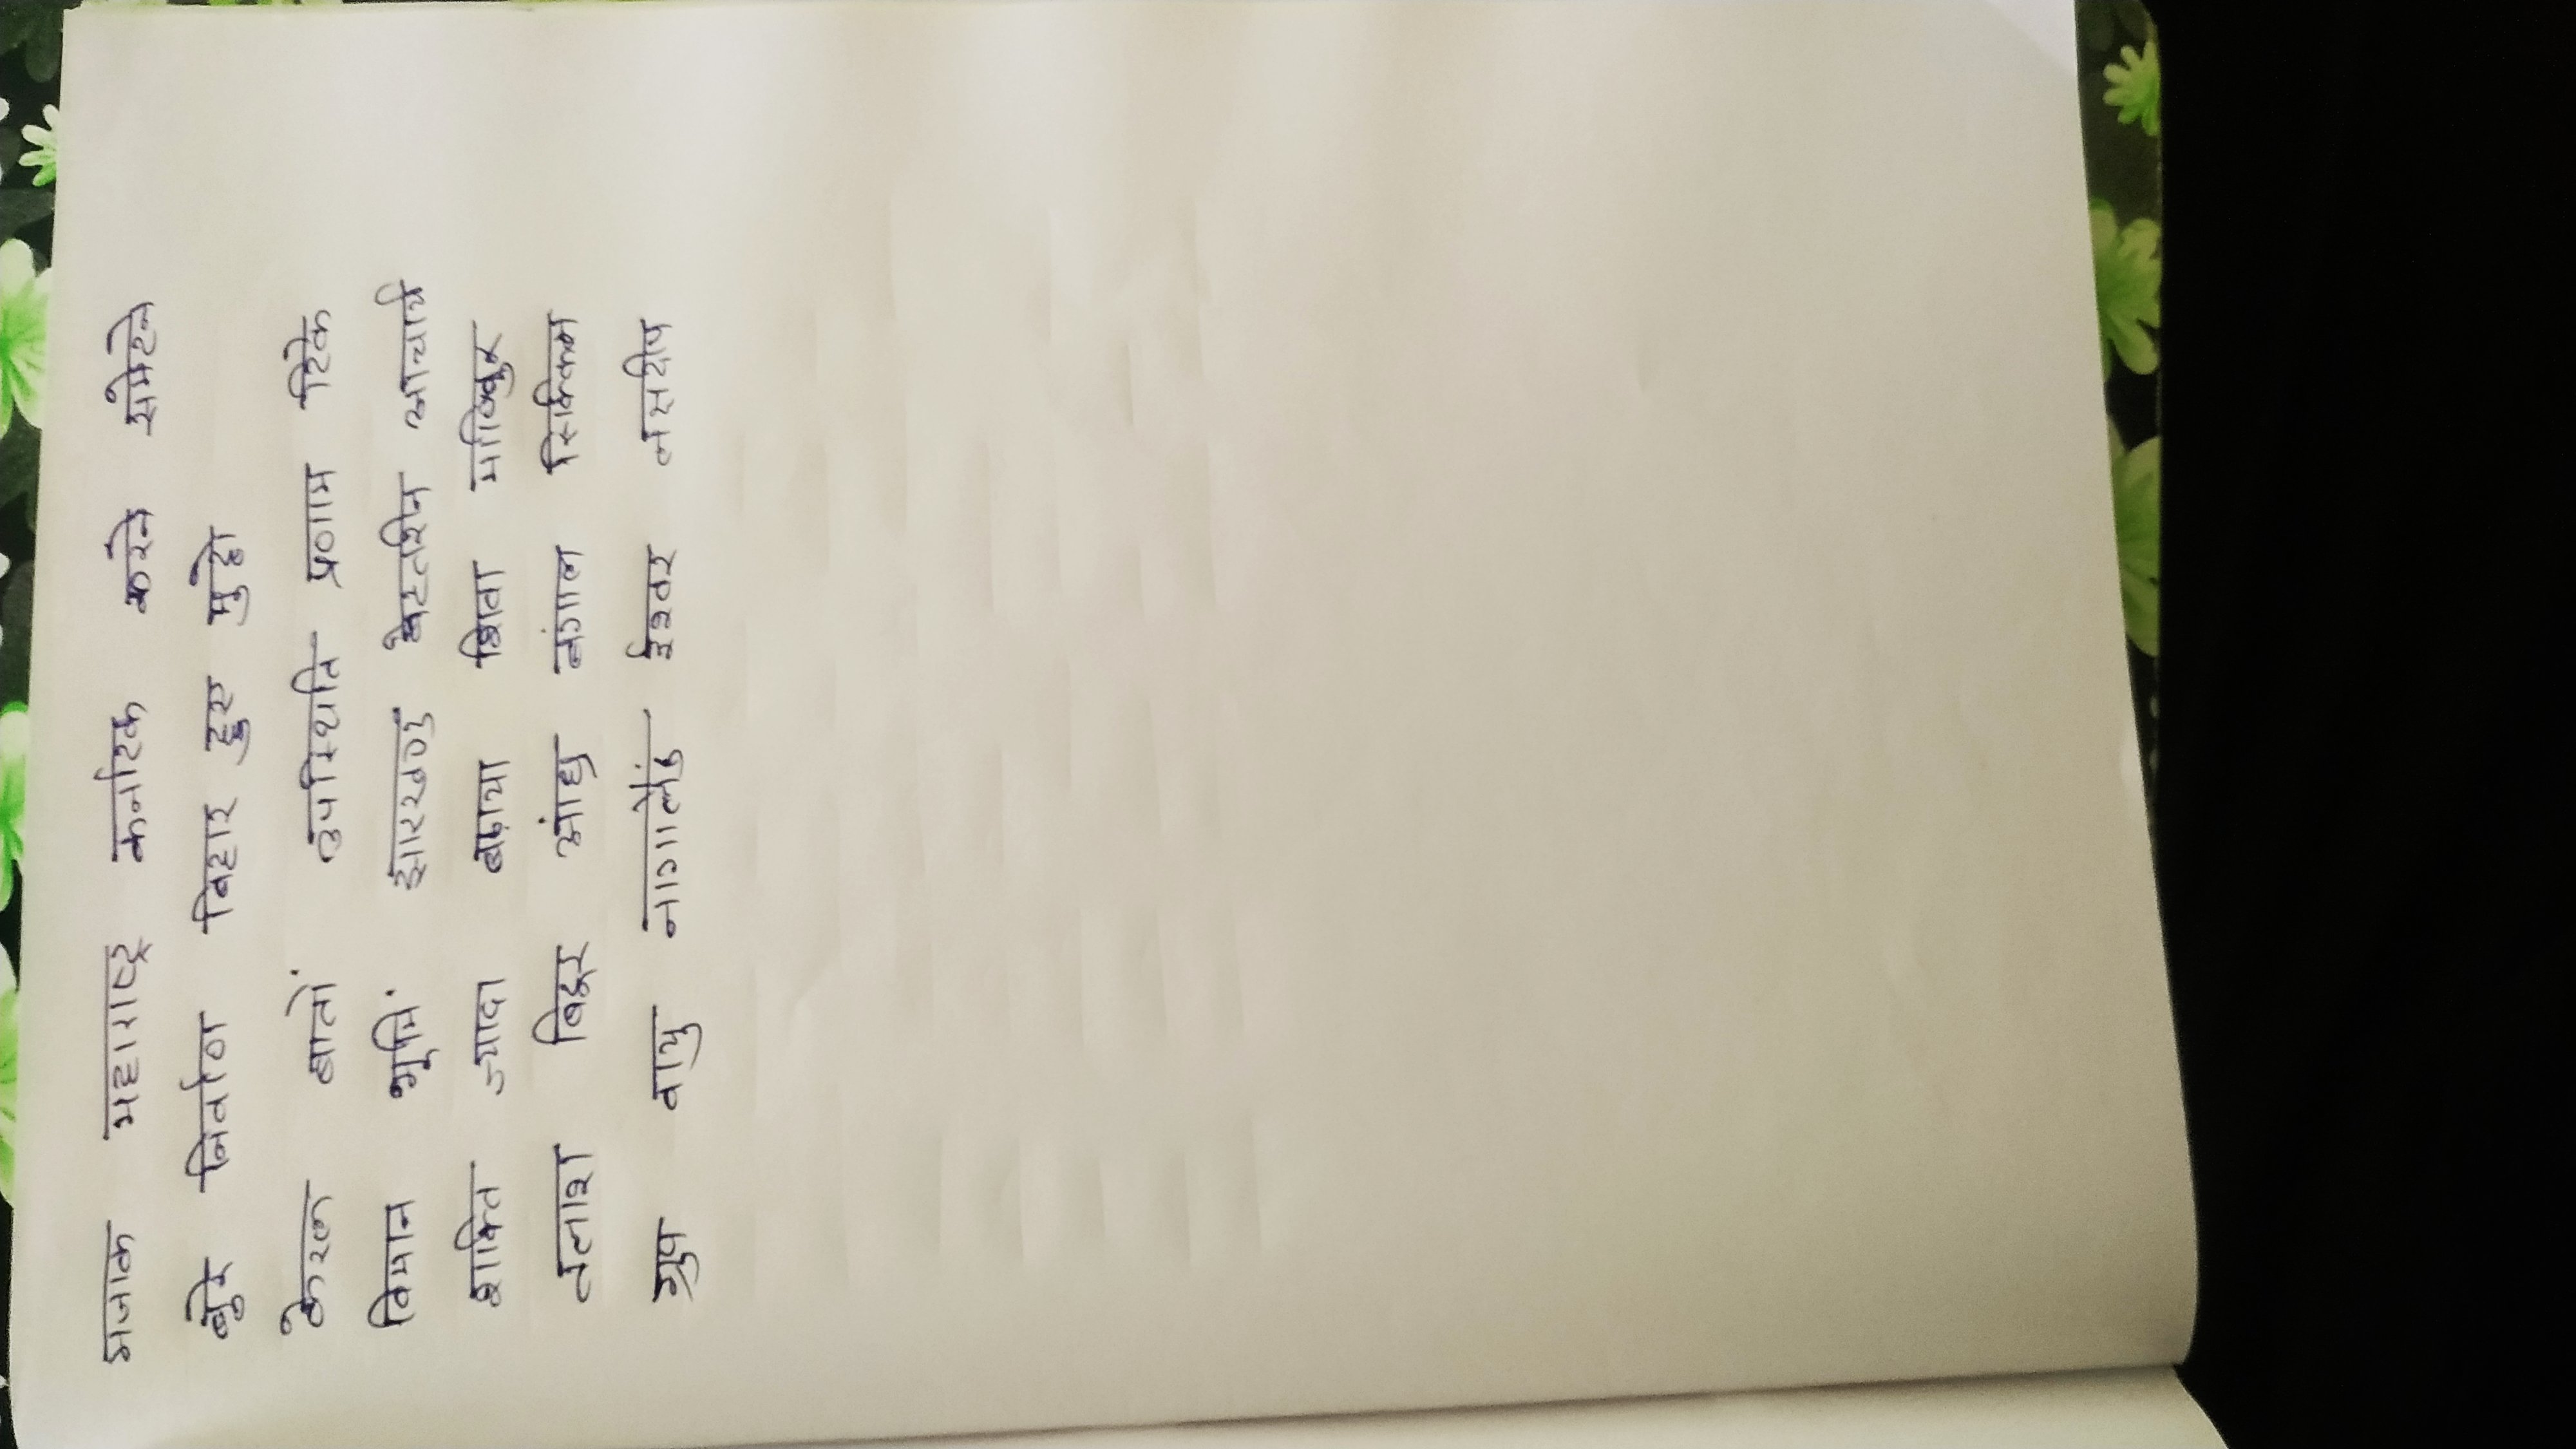 मजाक महाराष्ट्र कर्नाटक करने समेटने
बुरे निर्वाण बिहार हुए
केरल बातों उपस्थिति प्रणाम टिके
विमान झारखण्ड बेहतरीन आचार्य
शक्ति ज्यादा बढ़ाया शिवा
तलाश आंध्र बंगाल सिक्किम
ग्रुप वायु नागालैंड ईश्वर